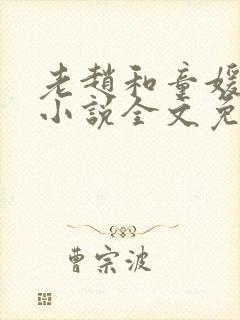 老趙和童媛
小說全文免
曹宗波